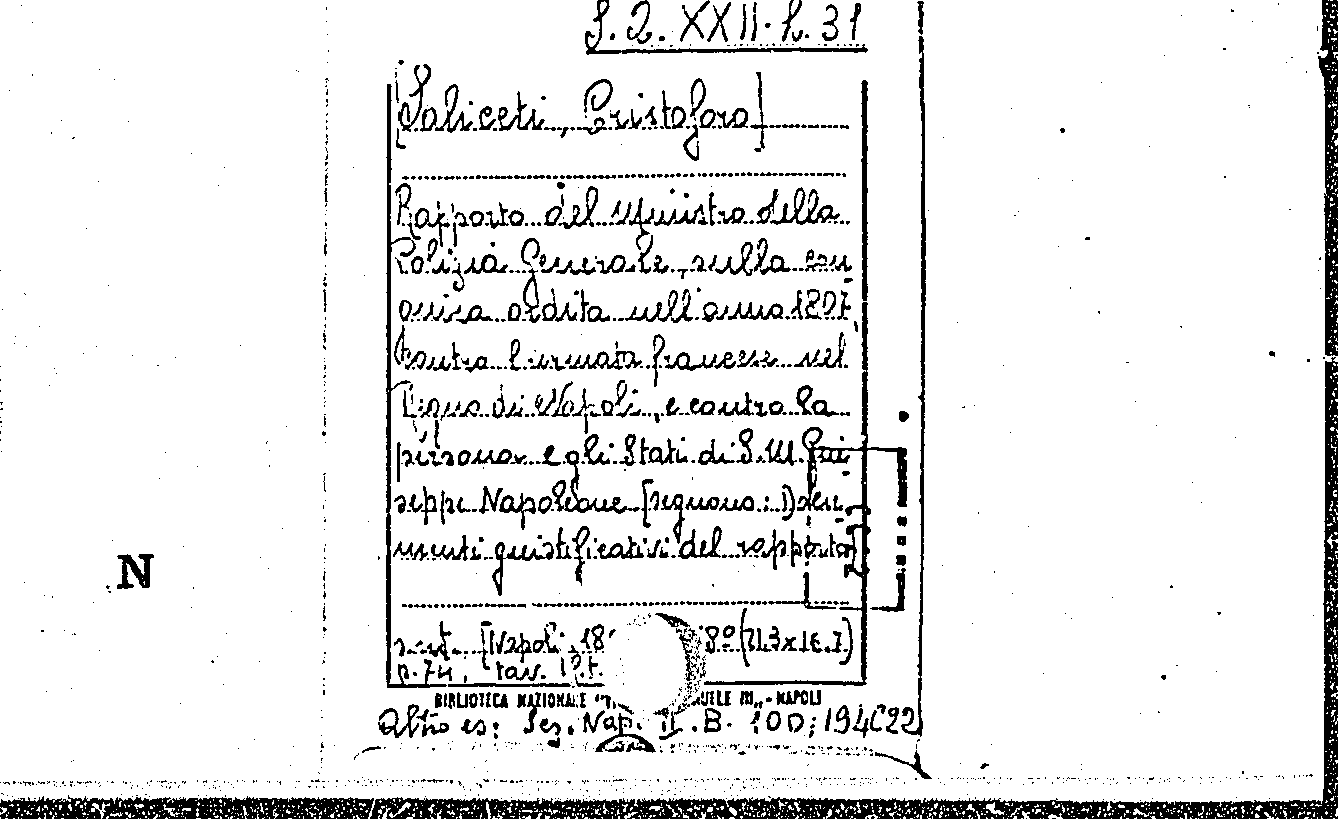 S.Q. XXII. h. 31
[Saliceti, Cristoforo]
Rapporto del Ministro della
Polizia Generale, sulla con
giura ordita nell'anno 1807,
contro l'armata francese nel
Regno di Napoli, e contro la
persona e gli Stati di S.M. Giu
seppe Napoleone [seguono: i) docu
menti giustificativi del rapporto]
N
s.n.t. [Napoli, 18 8º (21.3x16.7)
p. 74, tav. 1 p.t.
BIBLIOTECA NAZIONALE "V UELE III„ - NAPOLI
Altro es: Sez. Nap. II. B. 100; 194C22